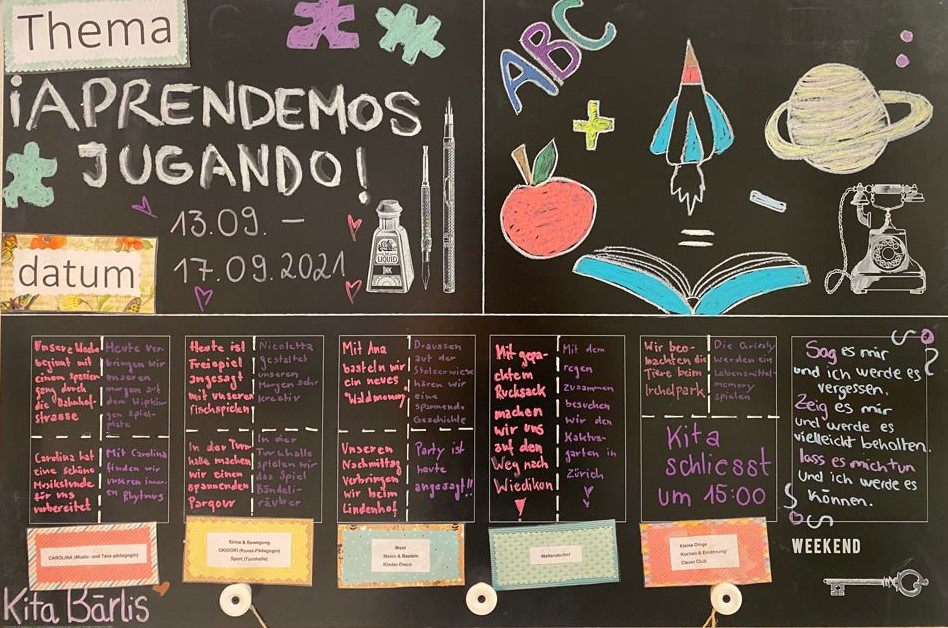 Thema
¡APRENDEMOS
JUGANDO!
13.09. –
17.09.2021
datum
LIQUID
INK
ABC
+
=
Unsere Woche
beginnt mit
einem Spazier
gang durch
die Bahnhof-
strasse
Heute ver-
bringen wir
unseren
morgen auf
dem Wipkin-
gen Spiel-
platz
Carolina hat
eine schöne
Musikstunde
für uns
vorbereitet
Mit Carolina
finden wir
unseren inner-
en Rhytmus
Heute ist
Freispiel
angesagt
mit unseren
Tischspielen
Nicoletta
gestaltet
unseren
Morgen sehr
kreativ
In der Turn-
halle machen
wir einen
spannenden
Parqour
In der
Turnhalle
spielen wir
das Spiel
Bändeli-
räuber
Mit Ana
basteln wir
ein neues
Waldmemory
Draussen
auf der
Stolzewiese
hören wir
eine
spannende
Geschichte
Unseren
Nachmittag
verbringen
wir beim
Lindenhof
Party ist
heute
angesagt!!
Mit gepa-
cktem
Rucksack
machen
wir uns
auf den
Weg nach
Wiedikon
Mit dem
regen
zusammen
besuchen
wir den
Kaktus-
garten in
Zürich
Wir beo-
bachten die
Tiere beim
Irchelpark
Die Grizzly
werden ein
Lebensmittel-
memory
spielen
Kita
schliesst
um 15:00
Sag es mir
und ich werde es
vergessen.
Zeig es mir
und werde es
vielleicht behalten.
lass es mich tun
und ich werde es
können.
CAROLINA (Musik- und Tanz-pädagogin)
Sinne & Bewegung
OKIDOKI (Kunst-Pädagogin)
Sport (Turnhalle)
Wald
Malen & Basteln
Kinder-Disco
Weltentdecker
Kleine Dinge
Kochen & Ernährung/
Clever Club
WEEKEND
Kita Bärlis